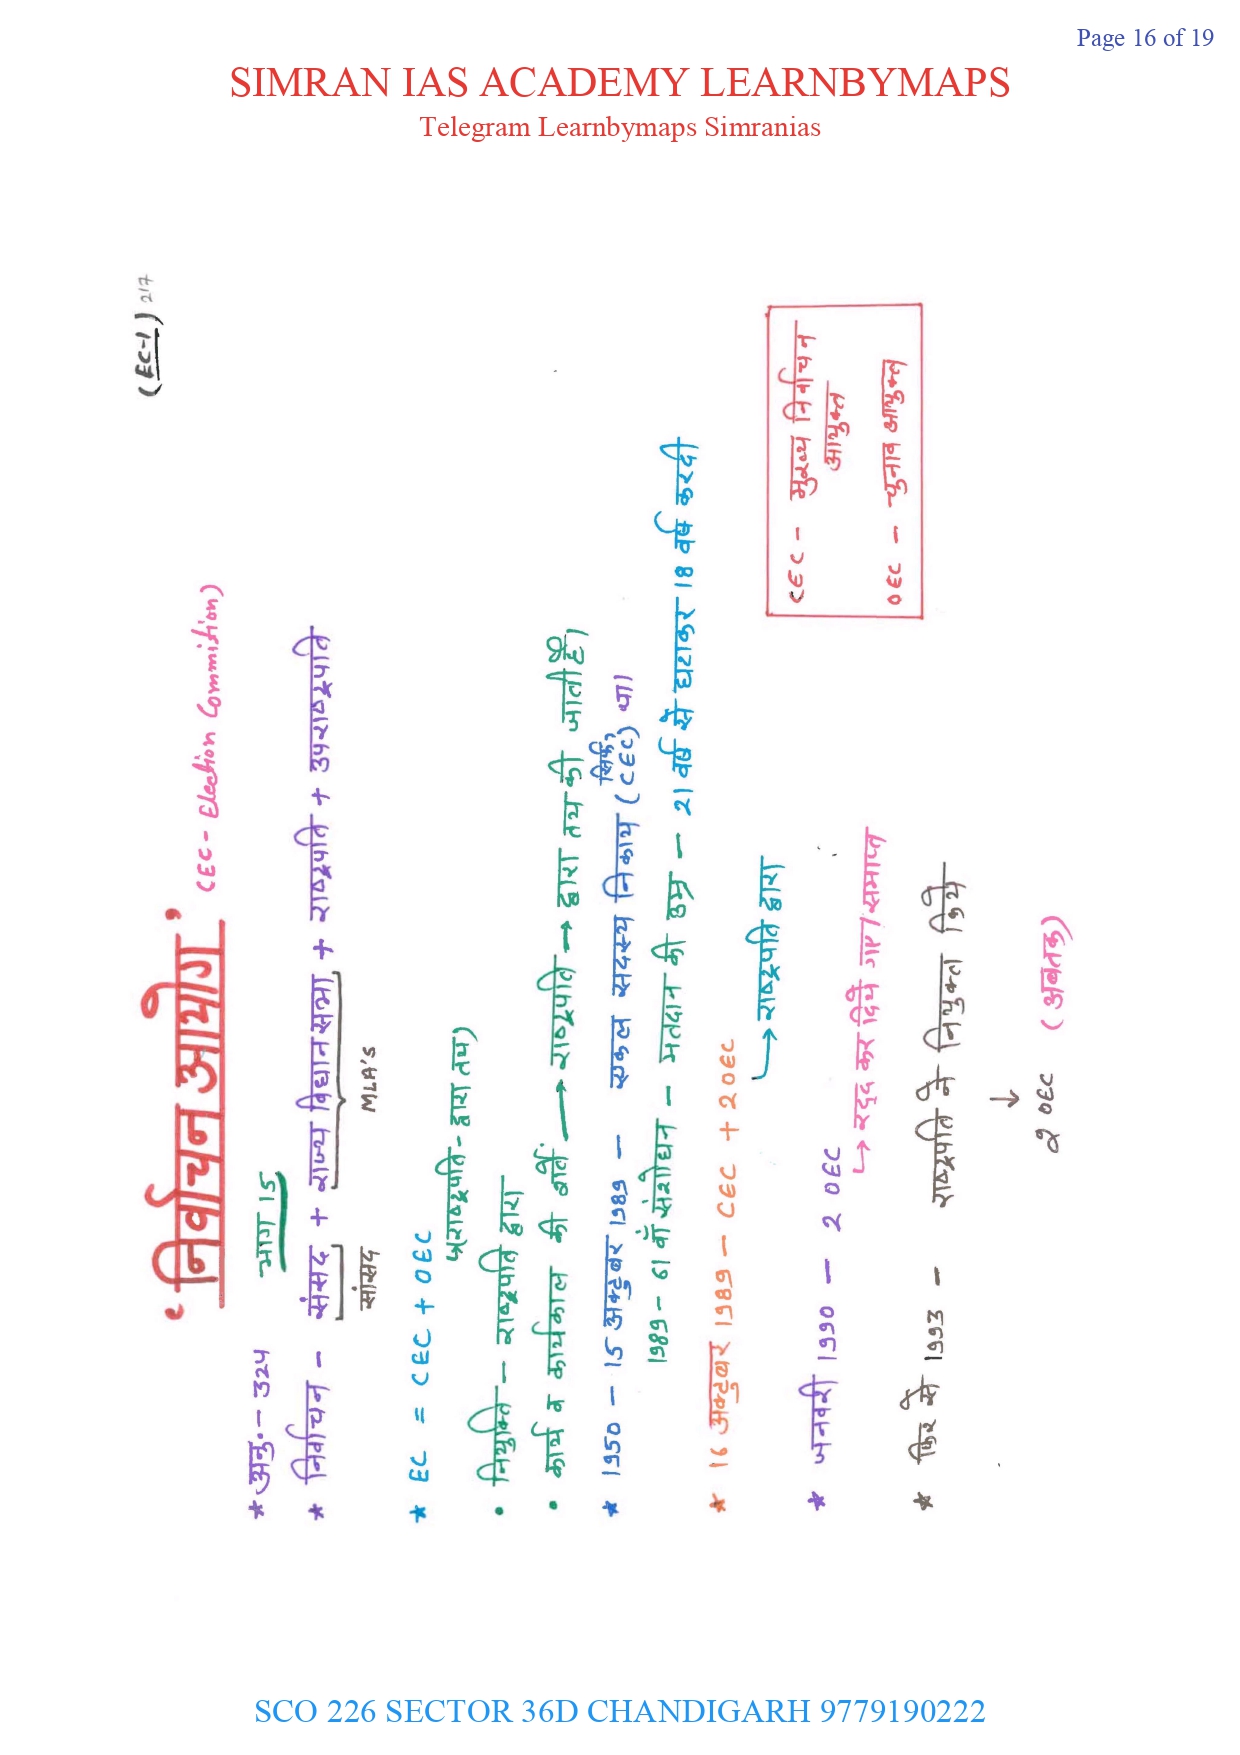 Page 16 of 19
SIMRAN IAS ACADEMY LEARNBYMAPS
Telegram Learnbymaps Simranias
(EC-1) 217
'निर्वाचन आयोग' (EC- Election Commition)
* अनु.- 324 भाग 15
* निर्वाचन - संसद + राज्य विधानसभा + राष्ट्रपति + उपराष्ट्रपति
सांसद MLA's
* EC = CEC + OEC
↳(राष्ट्रपति- द्वारा तय)
• नियुक्ति - राष्ट्रपति द्वारा
• कार्य व कार्यकाल की शर्तें → राष्ट्रपति → द्वारा तय की जाती है।
* 1950 - 15 अक्टूबर 1989 - एकल सदस्य निकाय (सिर्फ, CEC) था।
1989 - 61 वाँ संशोधन - मतदान की उम्र - 21 वर्ष से घटाकर 18 वर्ष करदी
* 16 अक्टुबर 1989 - CEC + 2 OEC
↳ राष्ट्रपति द्वारा
* जनवरी 1990 - 2 OEC
↳ रद्द कर दिये गए/समाप्त
* फिर से 1993 - राष्ट्रपति ने नियुक्त किये
↓
2 OEC (अबतक)
CEC - मुख्य निर्वाचन
आयुक्त
OEC - चुनाव आयुक्त
SCO 226 SECTOR 36D CHANDIGARH 9779190222